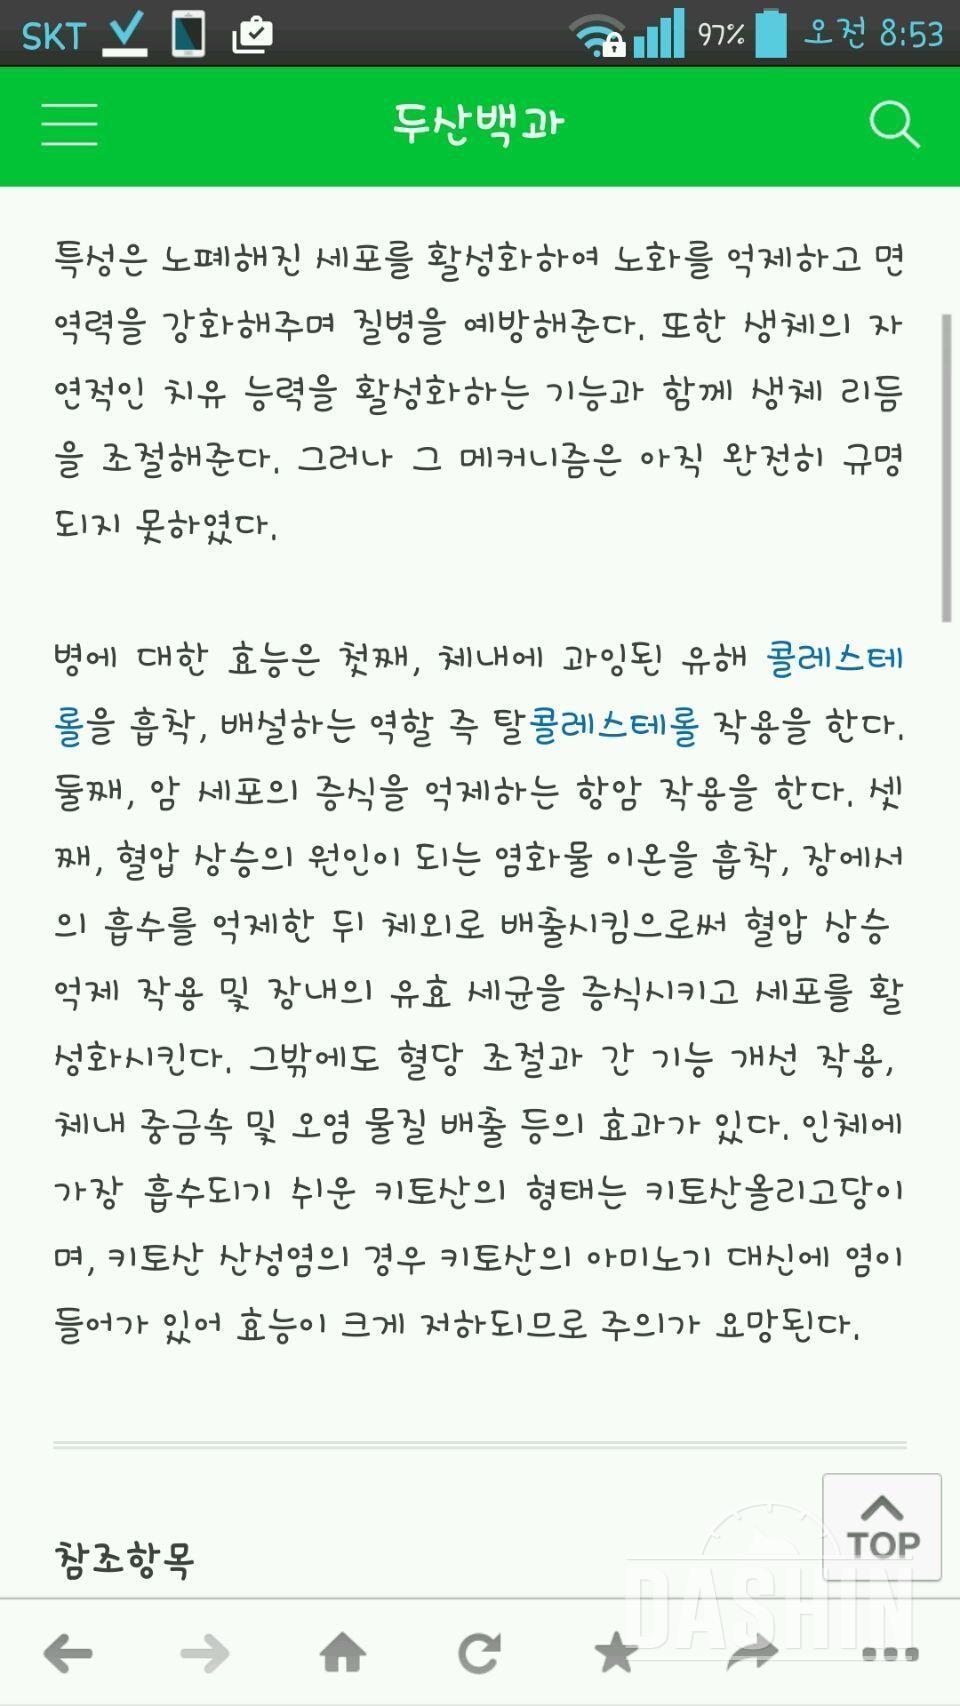 SKT 97% 오전 8:53
두산백과
특성은 노폐해진 세포를 활성화하여 노화를 억제하고 면
역력을 강화해주며 질병을 예방해준다. 또한 생체의 자
연적인 치유 능력을 활성화하는 기능과 함께 생체 리듬
을 조절해준다. 그러나 그 메커니즘은 아직 완전히 규명
되지 못하였다.
병에 대한 효능은 첫째, 체내에 과잉된 유해 콜레스테
롤을 흡착, 배설하는 역할 즉 탈콜레스테롤 작용을 한다.
둘째, 암 세포의 증식을 억제하는 항암 작용을 한다. 셋
째, 혈압 상승의 원인이 되는 염화물 이온을 흡착, 장에서
의 흡수를 억제한 뒤 체외로 배출시킴으로써 혈압 상승
억제 작용 및 장내의 유효 세균을 증식시키고 세포를 활
성화시킨다. 그밖에도 혈당 조절과 간 기능 개선 작용,
체내 중금속 및 오염 물질 배출 등의 효과가 있다. 인체에
가장 흡수되기 쉬운 키토산의 형태는 키토산올리고당이
며, 키토산 산성염의 경우 키토산의 아미노기 대신에 염이
들어가 있어 효능이 크게 저하되므로 주의가 요망된다.
TOP
참조항목
DASHIN